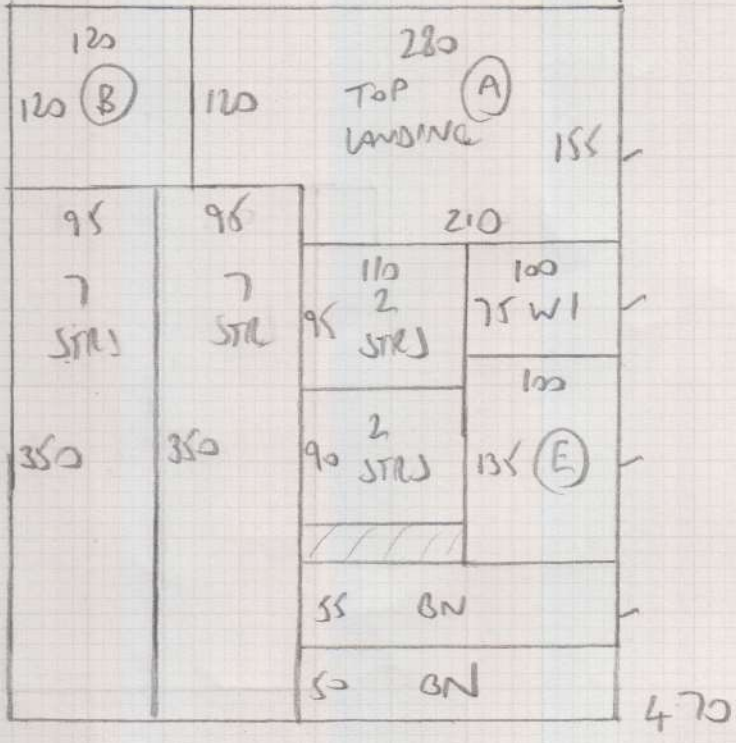 120
120 B
120
280
TOP A
LANDING
155
95
7
STRS
350
95
7
STR
350
210
110
2
95 STRS
100
75 W1
2
90 STRS
100
135 E
55 BN
50 BN
470